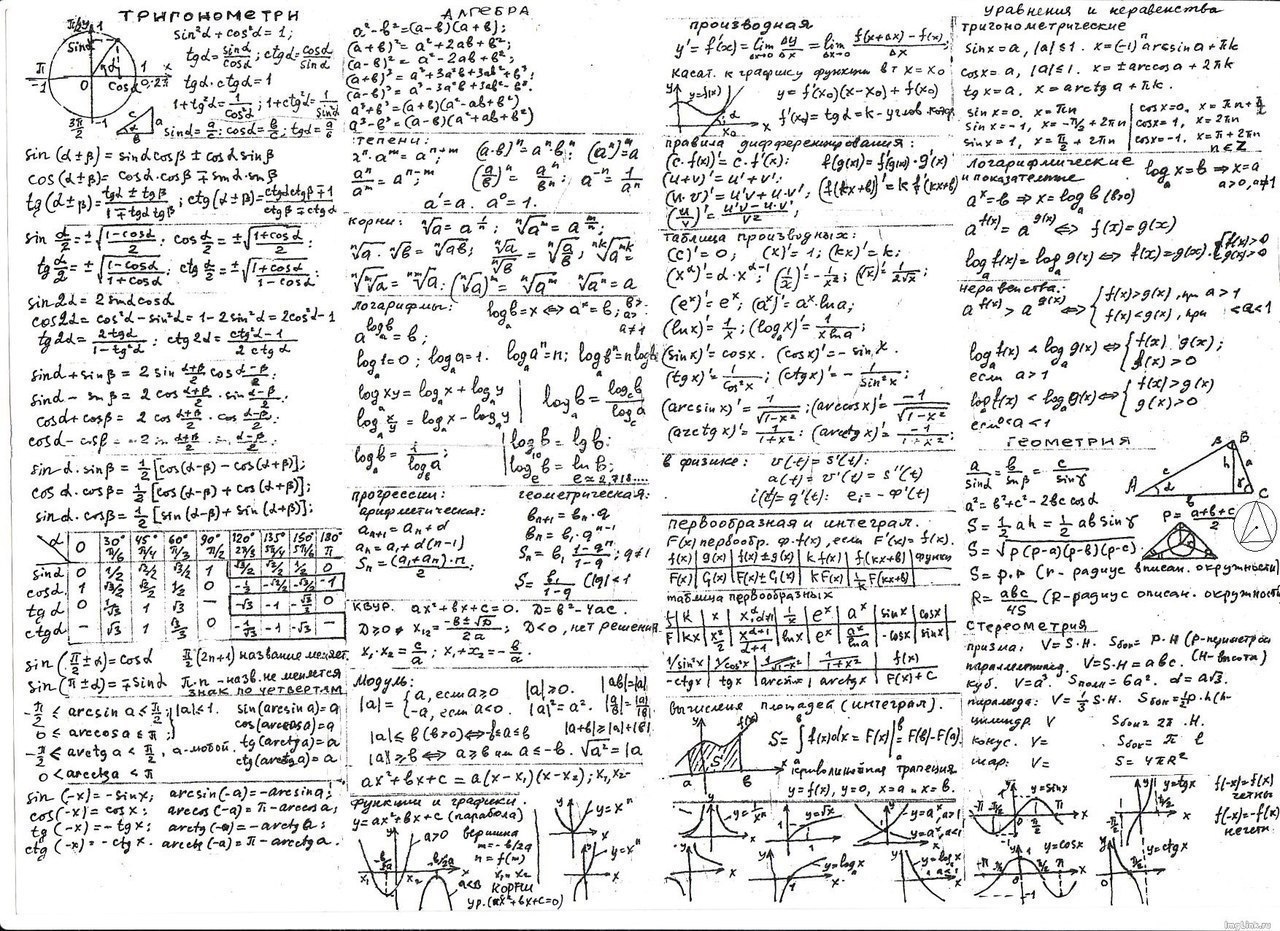 ТРИГОНОМЕТРИ
sin²α + cos²α = 1;
tgα = sinα/cosα; ctgα = cosα/sinα
tgα · ctgα = 1
1 + tg²α = 1/cos²α; 1 + ctg²α = 1/sin²α
sinα = a/c; cosα = b/c; tgα = a/b
sin(α±β) = sinα cosβ ± cosα sinβ
cos(α±β) = cosα·cosβ ∓ sinα·sinβ
tg(α±β) = (tgα ± tgβ)/(1 ∓ tgα tgβ); ctg(α±β) = (ctgα ctgβ ∓ 1)/(ctgβ ∓ ctgα)
sin α/2 = ±√((1−cosα)/2); cos α/2 = ±√((1+cosα)/2);
tg α/2 = ±√((1−cosα)/(1+cosα)); ctg α/2 = ±√((1+cosα)/(1−cosα))
sin2α = 2 sinα cosα
cos2α = cos²α − sin²α = 1 − 2sin²α = 2cos²α − 1
tg2α = 2tgα/(1−tg²α); ctg2α = (ctg²α − 1)/(2ctgα)
sinα + sinβ = 2 sin (α+β)/2 cos (α−β)/2
sinα − sinβ = 2 cos (α+β)/2 · sin (α−β)/2
cosα + cosβ = 2 cos (α+β)/2 · cos (α−β)/2
sinα·sinβ = ½[cos(α−β) − cos(α+β)];
cosα·cosβ = ½[cos(α−β) + cos(α+β)];
sinα·cosβ = ½[sin(α−β) + sin(α+β)];
α 0 30° π/6 45° π/4 60° π/3 90° π/2 120° 2π/3 135° 3π/4 150° 5π/6 180° π
sinα 0 1/2 √2/2 √3/2 1 √3/2 √2/2 1/2 0
cosα 1 √3/2 √2/2 1/2 0 −1/2 −√2/2 −√3/2 −1
tgα 0 1/√3 1 √3 − −√3 −1 −√3/3 0
ctgα − √3 1 √3/3 0 −1/√3 −1 −√3 −
sin(π/2 ± α) = cosα π/2(2n+1) название меняет.
sin(π ± α) = ∓sinα π·n - назв. не меняется
знак по четвертям
−π/2 ≤ arcsin a ≤ π/2; |a| ≤ 1. sin(arcsin a) = a
0 ≤ arccos a ≤ π cos(arccos a) = a
−π/2 ≤ arctg a < π/2, a - любой. tg(arctg a) = a
0 < arcctg a < π ctg(arcctg a) = a
sin(−x) = −sinx; arcsin(−a) = −arcsin a;
cos(−x) = cosx; arccos(−a) = π − arccos a;
tg(−x) = −tgx; arctg(−a) = −arctg a;
ctg(−x) = −ctgx. arcctg(−a) = π − arcctg a.
АЛГЕБРА
a² − b² = (a−b)(a+b);
(a+b)² = a² + 2ab + b²;
(a−b)² = a² − 2ab + b²;
(a+b)³ = a³ + 3a²b + 3ab² + b³;
(a−b)³ = a³ − 3a²b + 3ab² − b³.
a³ + b³ = (a+b)(a² − ab + b²)
a³ − b³ = (a−b)(a² + ab + b²)
тепени:
aⁿ·aᵐ = aⁿ⁺ᵐ (a·b)ⁿ = aⁿbⁿ;
aⁿ/aᵐ = aⁿ⁻ᵐ (a/b)ⁿ = aⁿ/bⁿ; a⁻ⁿ = 1/aⁿ
a¹ = a. a⁰ = 1.
корни: ⁿ√a = a^(1/n); ⁿ√aᵐ = a^(m/n);
ⁿ√a · ⁿ√b = ⁿ√(ab); ⁿ√a/ⁿ√b = ⁿ√(a/b);
логарифмы: logₐb = x ⇔ aˣ = b; b> a> a≠1
a^(logₐb) = b;
logₐ1 = 0; logₐa = 1. logₐaⁿ = n; logₐbⁿ = n logₐb
logₐxy = logₐx + logₐy
logₐ x/y = logₐx − logₐy
logₐb = log_c b / log_c a
logₐb = 1/log_b a;
log₁₀b = lg b;
logₑb = ln b;
e ≈ 2,718....
прогрессии: геометрическая:
арифметическая: bₙ₊₁ = bₙ·q
aₙ₊₁ = aₙ + d bₙ = b₁·qⁿ⁻¹
aₙ = a₁ + d(n−1) Sₙ = b₁ (1−qⁿ)/(1−q); q≠1
Sₙ = (a₁+aₙ)·n/2 S = b₁/(1−q) |q|<1
квур. ax² + bx + c = 0. D = b² − 4ac.
D ≥ 0 x₁₂ = (−b±√D)/2a; D<0, нет решения.
x₁·x₂ = c/a; x₁+x₂ = −b/a.
модуль:
|a| = {a, если a≥0 −a, если a<0. |a| ≥ 0. |a|² = a².
|a| ≤ b (b>0) ⇔ −b ≤ a ≤ b
|a| ≥ b ⇔ a ≥ b или a ≤ −b. √a² = |a
ax² + bx + c = a(x−x₁)(x−x₂); x₁,x₂−
функции и графики.
y = ax² + bx + c (парабола)
a>0 вершина
m = −b/2a
n = f(m)
a<0 корни
ур. (ax²+bx+c=0)
y=xⁿ
y=xⁿ
производная
y' = f'(x) = lim Δx→0 Δy/Δx = lim Δx→0 (f(x+Δx) − f(x))/Δx;
касат. к графику функции в т x = x₀
y=f(x) y = f'(x₀)(x−x₀) + f(x₀)
f'(x₀) = tgα = k - углов. коэф.
правила дифференцирования:
(c·f(x))' = c·f'(x); f(g(x))' = f'(g(x))·g'(x)
(u+v)' = u' + v';
(u·v)' = u'v + u·v'; (f(kx+b))' = k f'(kx+b)
(u/v)' = (u'v − u·v')/v²;
таблица производных:
(c)' = 0; (x)' = 1; (kx)' = k;
(x^α)' = α·x^(α−1); (1/x)' = −1/x²; (√x)' = 1/(2√x);
(eˣ)' = eˣ; (aˣ)' = aˣ·ln a;
(lnx)' = 1/x; (logₐx)' = 1/(x ln a)
(sinx)' = cosx. (cosx)' = −sinx.
(tgx)' = 1/cos²x; (ctgx)' = −1/sin²x;
(arcsinx)' = 1/√(1−x²); (arccosx)' = −1/√(1−x²)
(arctgx)' = 1/(1+x²); (arcctgx)' = −1/(1+x²);
в физике: v(t) = s'(t);
a(t) = v'(t) = s''(t)
i(t) = q'(t); eᵢ = −Φ'(t)
первообразная и интеграл.
F(x) первообр. ф. f(x), если F'(x) = f(x).
f(x) g(x) f(x)±g(x) k f(x) f(kx+b) функц
F(x) G(x) F(x)±G(x) kF(x) 1/k F(kx+b)
таблица первообразных
f k x 1/x eˣ aˣ sinx cosx
F kx x²/2 x^(α+1)/(α+1) lnx eˣ aˣ/ln a −cosx sinx
1/sin²x 1/cos²x 1/√(1−x²) 1/(1+x²) f(x)
−ctgx tgx arcsinx arctgx F(x)+C
S = ∫f(x)dx = F(x)| = F(b) − F(a).
криволинейная трапеция
y = f(x), y = 0, x = a и x = b.
y=√x
y=logₐx
уравнения и неравенства
тригонометрические
sinx = a, |a| ≤ 1. x = (−1)ⁿ arcsin a + πk
cosx = a, |a| ≤ 1. x = ±arccos a + 2πk
tgx = a, x = arctg a + πk.
sinx = 0. x = πn cosx = 0, x = πn + π/2
sinx = −1, x = −π/2 + 2πn cosx = 1, x = 2πn
sinx = 1, x = π/2 + 2πn cosx = −1. x = π + 2πn
n ∈ Z
логарифмические
и показательные
logₐx = b ⇒ x = a
a>0, a≠1
aˣ = b ⇒ x = logₐb (b>0)
a^f(x) = a^g(x) ⇔ f(x) = g(x)
logₐf(x) = logₐg(x) ⇔ f(x) = g(x). f(x)>0 g(x)>0
неравенства:
a^f(x) > a^g(x) ⇔ {f(x)>g(x), при a>1 f(x)<g(x), при <a<1
logₐf(x) < logₐg(x) ⇔ {f(x) g(x); f(x)>0
если a>1
logₐf(x) < logₐg(x) ⇔ {f(x)>g(x) g(x)>0
если <a<1
геометрия
a/sinα = b/sinβ = c/sinγ
a² = b² + c² − 2bc cosα
S = ½ah = ½ab sinγ
p = (a+b+c)/2
S = √(p(p−a)(p−b)(p−c).
S = p·r (r - радиус вписан. окружности)
R = abc/4S (R - радиус описан. окружность
стереометрия
призма: V = S·H. Sбок = P·H (P-периметра
(H-высота)
параллепипед. V = S·H = abc.
куб. V = a³. Sполн = 6a². d = a√3.
V = ⅓S·H.
цилиндр. V Sбок = 2π ·H.
конус. V = Sбок = π l
шар: V = S = 4πR²
y=sinx
y=cosx
y=tgx
y=ctgx
f(−x)=f(x)
четны
f(−x)=−f(x
нечет.
ImgLink.ru